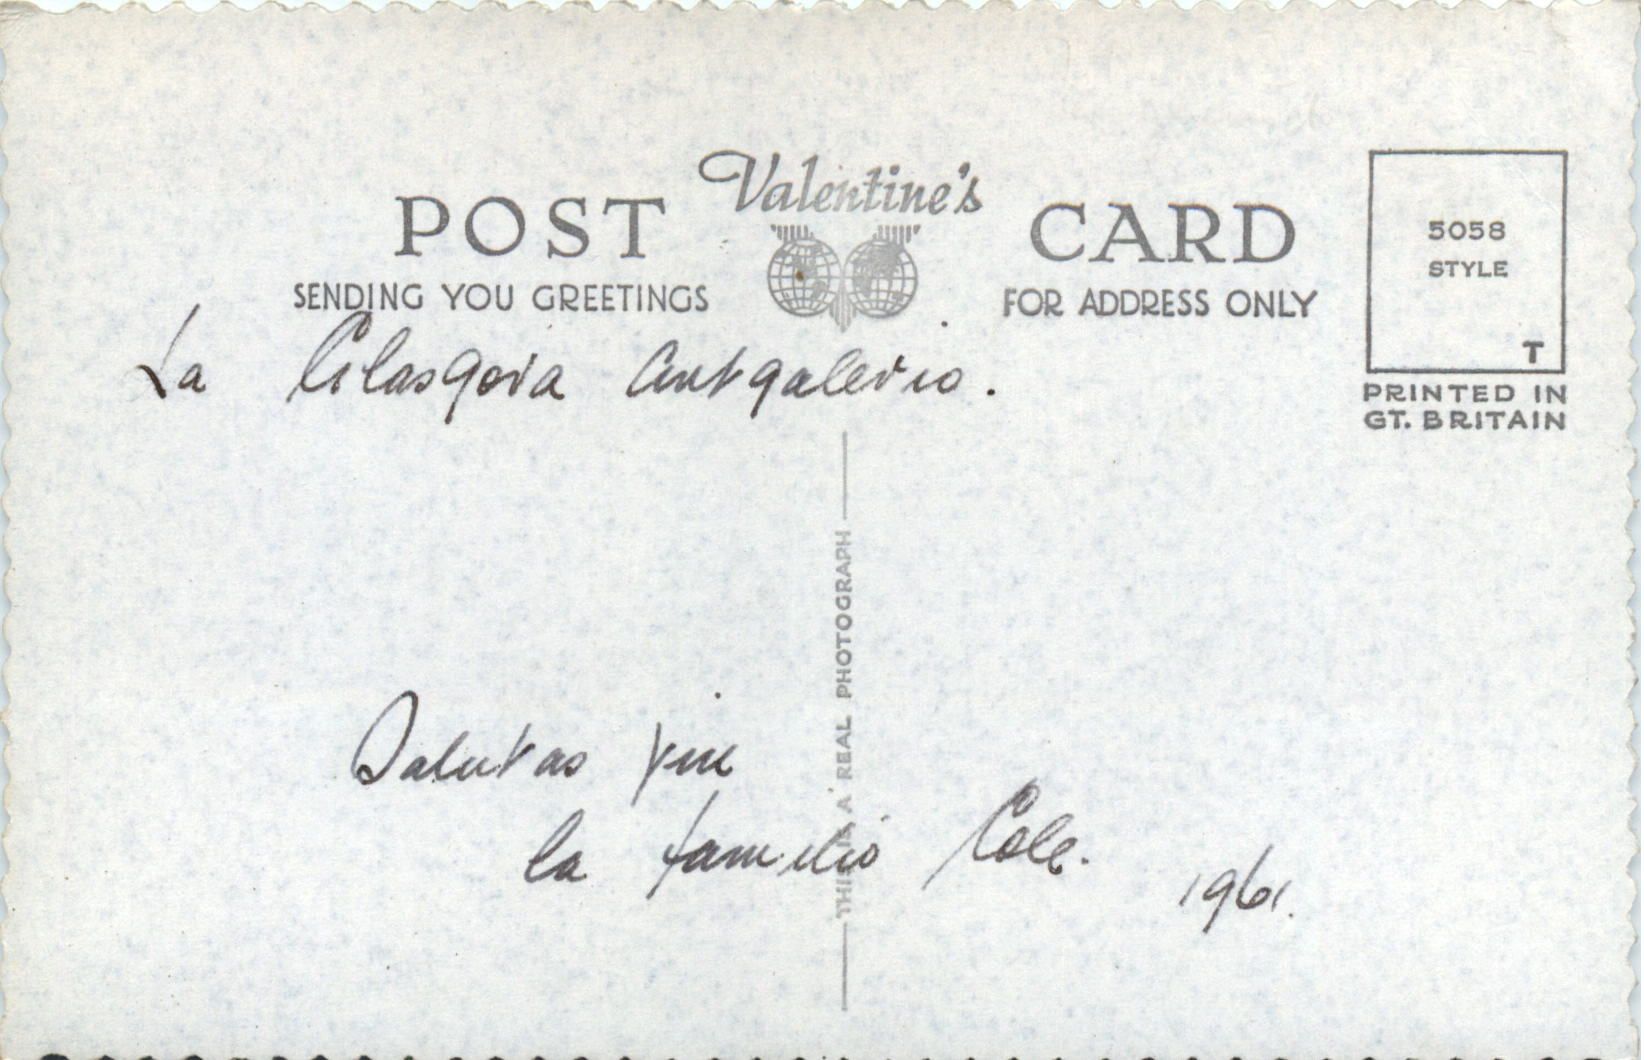 Valentine's
POST CARD
SENDING YOU GREETINGS
FOR ADDRESS ONLY
5058
STYLE
T
PRINTED IN
GT. BRITAIN
La Glasgova Artgalerio.
THIS IS A REAL PHOTOGRAPH
Salutas vin
la familio Cole.
1961.